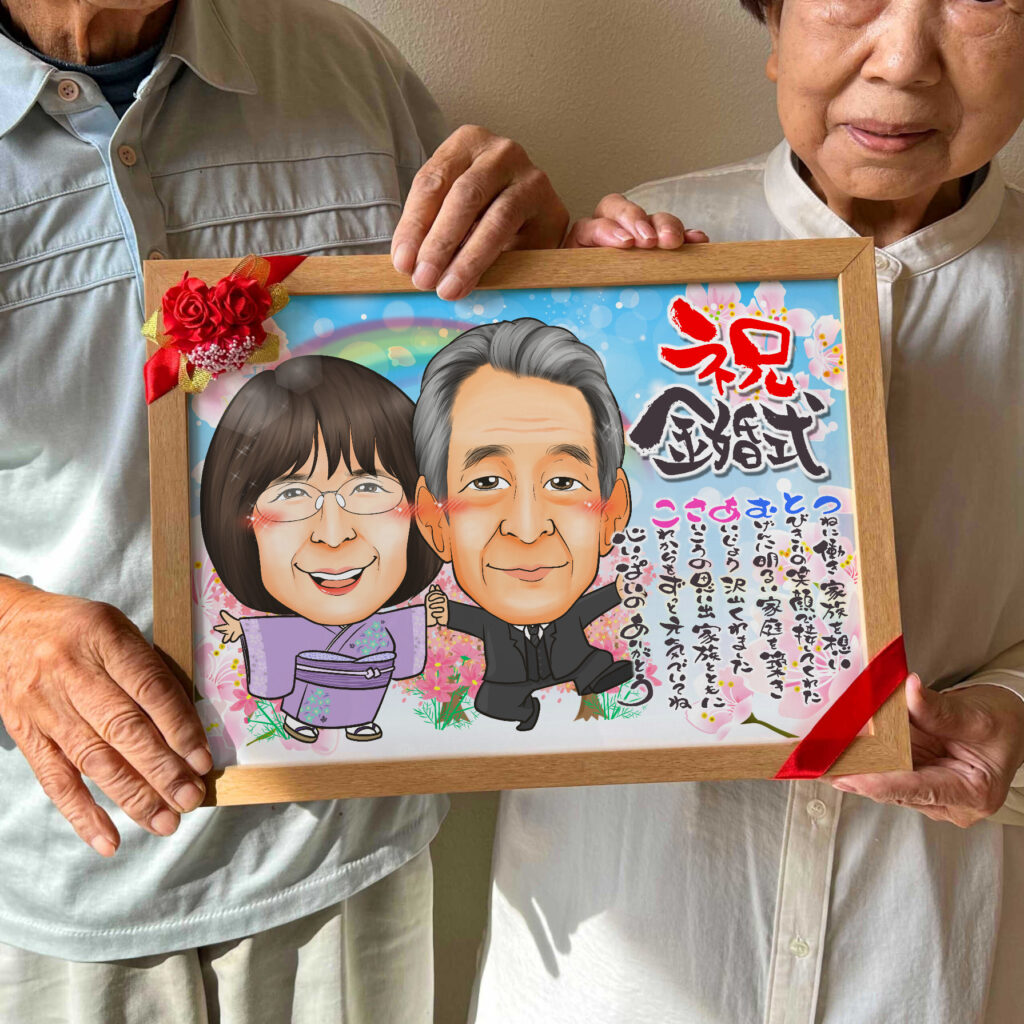 祝
金婚式
つねに働き 家族を想い
とびきりの笑顔で接してくれた
むげんに明るい 家庭を築き
あいじょう 沢山くれました
さいこうの思い出 家族とともに
これからもずっと元気でいてね
心いっぱいの ありがとう